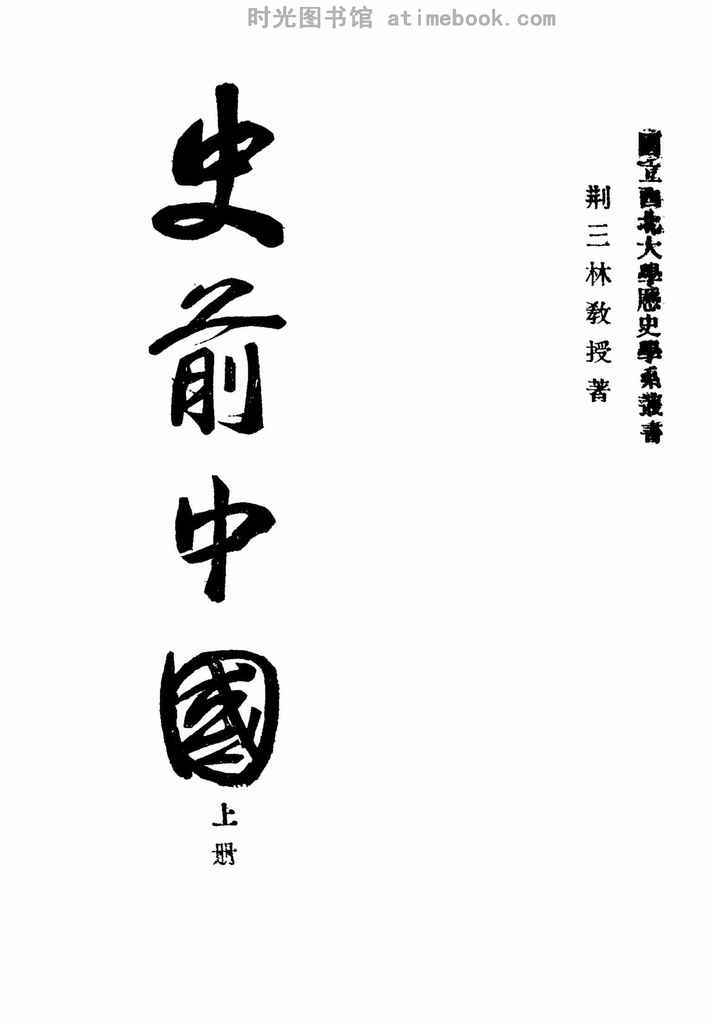 时光图书馆 atimebook.com
國立西北大學歷史學系叢書
荆三林教授著
史前中國
上册